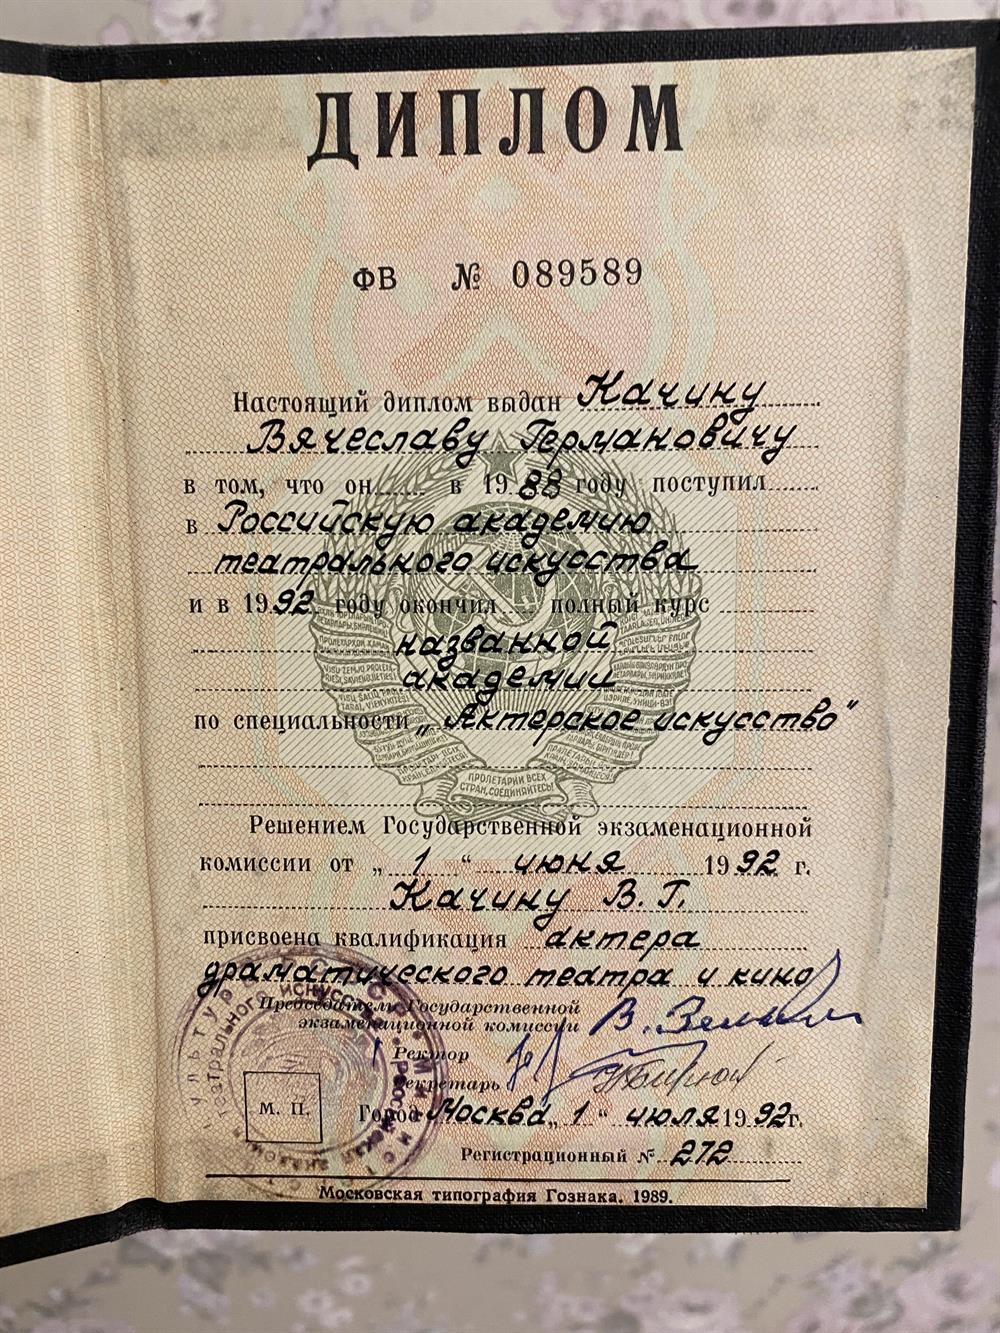 ДИПЛОМ
ФВ № 089589
Настоящий диплом выдан Качину
Вячеславу Германовичу
в том, что он в 1988 году поступил
в Российскую академию
театрального искусства
и в 1992 году окончил полный курс
названной
академии
по специальности „Актерское искусство"
ПРОЛЕТАРИИ ВСЕХ
СТРАН, СОЕДИНЯЙТЕСЬ!
Решением Государственной экзаменационной
комиссии от „1" июня 1992 г.
Качину В. Г.
присвоена квалификация актера
драматического театра и кино
Председатель Государственной
экзаменационной комиссии
Ректор
Секретарь
М. П.
Город Москва „1" июля 1992г.
Регистрационный № 272
Московская типография Гознака. 1989.